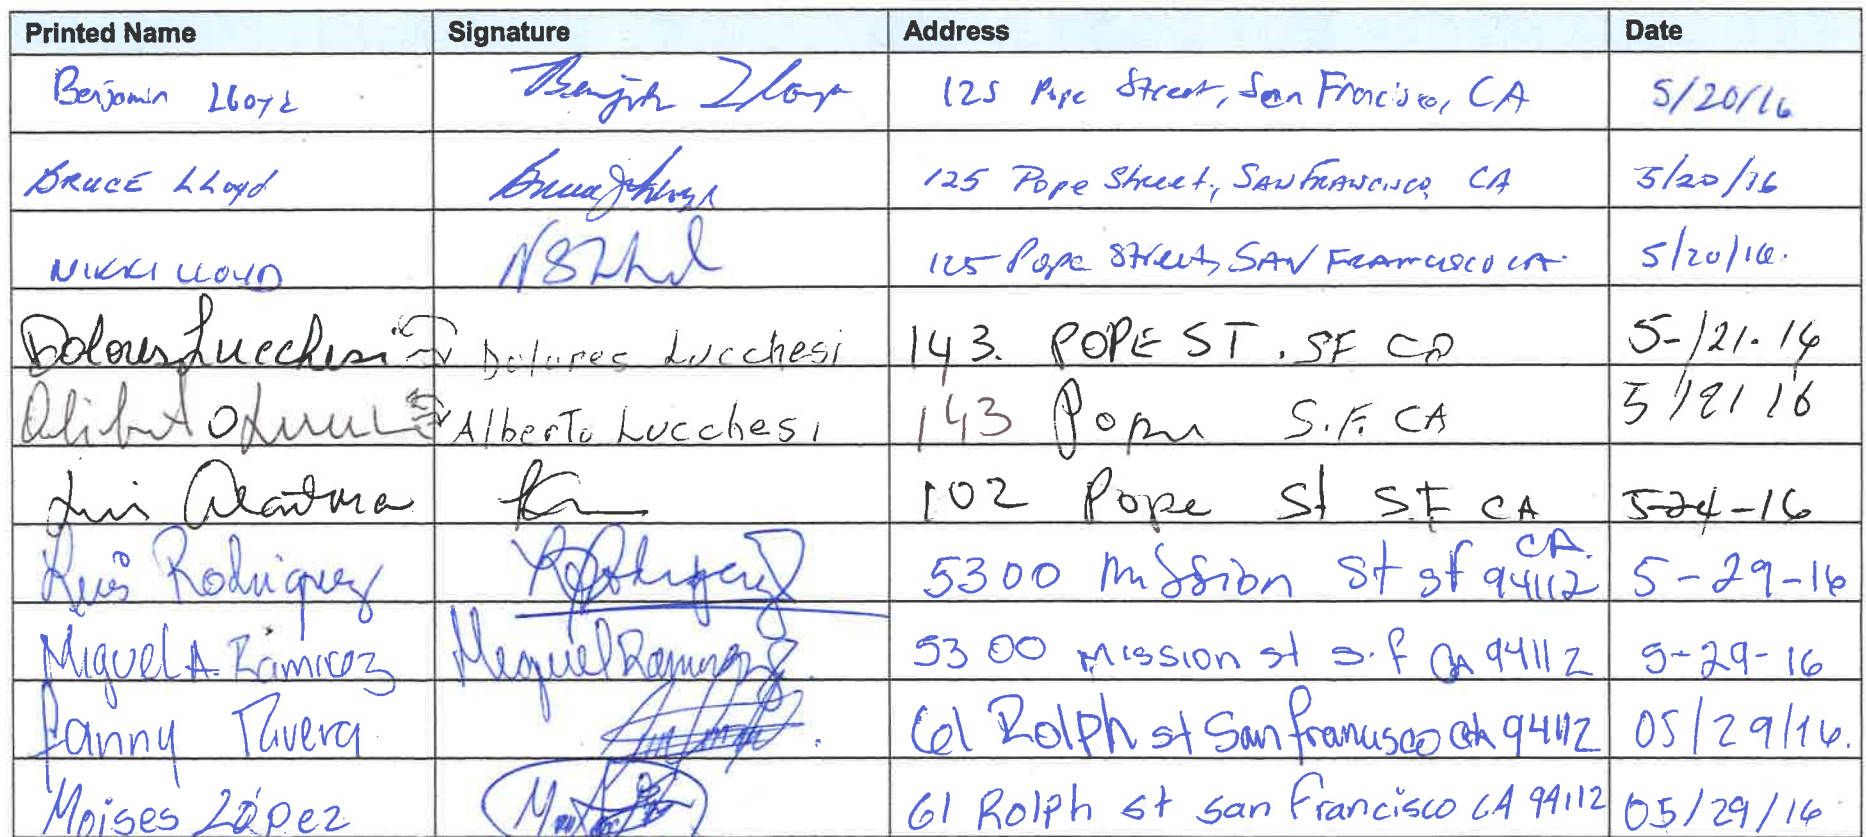 Printed Name Signature Address Date
Benjamin Lloyd Benjamin Lloyd 125 Pope Street, San Francisco, CA 5/20/16
BRUCE LLoyd 125 Pope Street, SAN FRANCISCO, CA 5/20/16
NIKKI LLOYD 125 Pope Street, SAN FRANCISCO CA. 5/20/16.
Dolores Lucchesi Dolores Lucchesi 143. POPE ST. SF CA 5-/21-16
Alberto Lucchesi 143 Pope S.F. CA 16
Luis 102 Pope St S.F CA 5-24-16
Luis Rodriguez Rodriguez 5300 Mission St sf CA. 94112 5-29-16
Miguel A. Ramirez Miguel Ramirez 5300 Mission st s.f CA 94112 5-29-16
Fanny Rivera 61 Rolph st San francisco CA 94112 05/29/16.
Moises López 61 Rolph st san francisco CA 94112 05/29/16